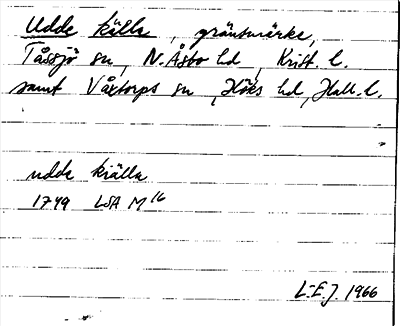 Udde källa, gränsmärke,
Tåssjö sn, N. Åsbo hd, Krist. l.
samt Våxtorps sn, Höks hd, Hall. l.
udde kiälla
1749 LSA M16
L-E.J. 1966